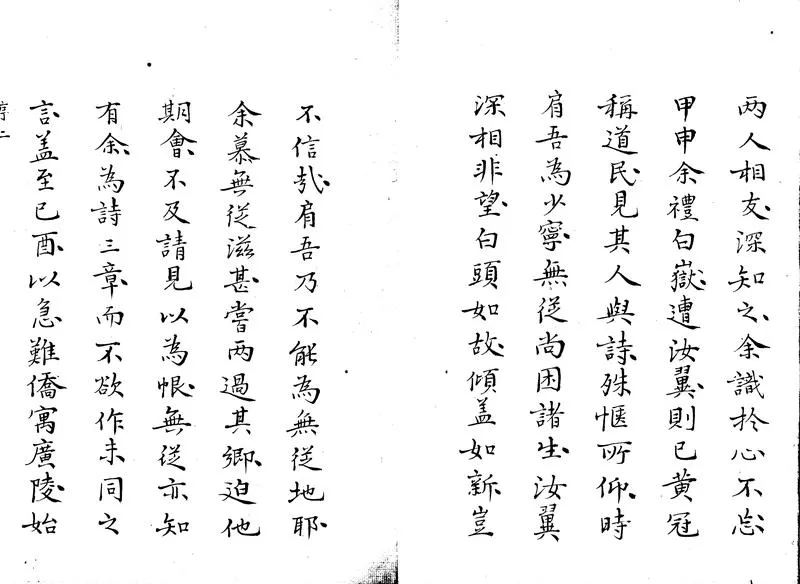 两人相友深知之余識於心不忘
甲申余禮白嶽遭汝翼則已黄冠
稱道民見其人與詩殊愜所仰時
肩吾為少寧無從尚困諸生汝翼
深相非望白頭如故傾盖如新豈
不信哉肩吾乃不能為無從地耶
余慕無從滋甚嘗两過其鄉迫他
期會不及請見以為恨無從亦知
有余為詩三章而不欲作未同之
言盖至已酉以急難僑寓廣陵始